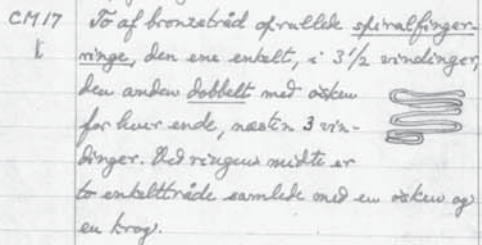 CM17 To af bronzetråd oprullede spiralfinger-
ringe, den ene enkelt, i 3 1/2 vindinger,
den anden dobbelt med øsken
for hver ende, næsten 3 vin-
dinger. Ved ringens midte er
to enkelttråde samlede med en øsken og
en krog.